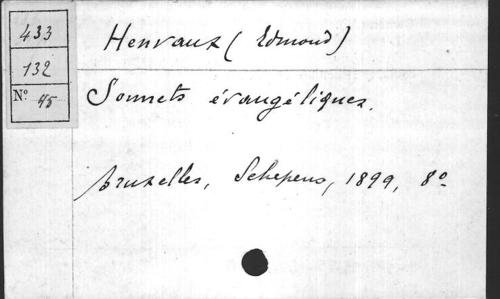 433
132
Nº 45
Henvaux (Edmond)
Sonnets évangéliques.
Bruxelles, Schepens, 1899, 8º